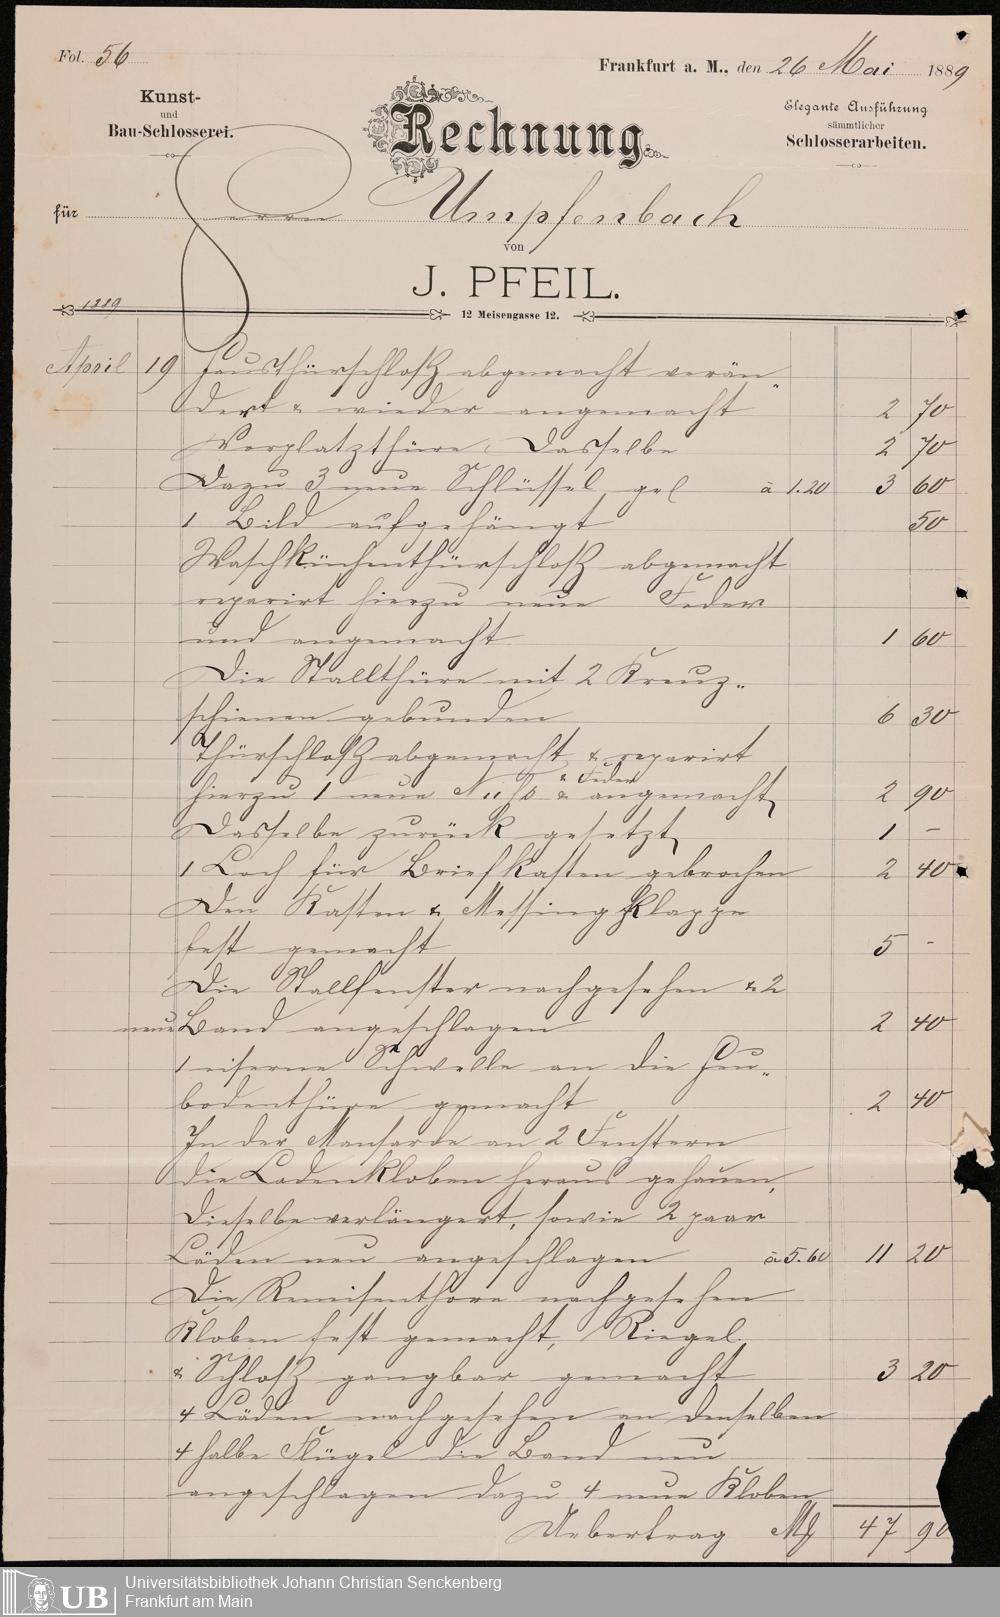 Fol. 56
Frankfurt a. M., den 26 Mai 1889
Kunst-
und
Bau-Schlosserei.
Rechnung
Elegante Ausführung
sämmtlicher
Schlosserarbeiten.
für Herrn Umpfenbach
von
J. PFEIL.
1889
12 Meisengasse 12.
April 19 Hausthürschloß abgemacht verän„
dert & wieder angemacht 2 70
Vorplatzthüre Dasselbe 2 70
Dazu 3 neue Schlüssel gel à 1.20 3 60
1 Bild aufgehängt 50
Waschküchenthürschloß abgemacht
reparirt hierzu neue Feder
und angemacht 1 60
Die Stallthüre mit 2 Kreuz„
schienen gebunden 6 30
Thürschloß abgemacht & reparirt
hierzu 1 neue Nuß & Feder & angemacht 2 90
Dasselbe zurück gesetzt 1 –
1 Loch für Briefkasten gebrochen 2 40
Den Kasten & Messing Klappe
fest gemacht 5 -
Die Stallfenster nachgesehen & 2
neue Band angeschlagen 2 40
1 eiserne Schwelle an die Heu„
bodenthüre gemacht 2 40
In der Mansarde an 2 Fenstern
die Ladenkloben heraus gehauen,
Dieselbe verlängert, sowie 2 paar
Läden neu angeschlagen à 5.60 11 20
Die Remisenthore nachgesehen
Kloben fest gemacht, Riegel
& Schloß gangbar gemacht 3 20
4 Läden nachgesehen an denselben
4 halbe Flügel die Band neu
angeschlagen dazu 4 neue Kloben
Uebertrag M 47 90
UB
Universitätsbibliothek Johann Christian Senckenberg
Frankfurt am Main